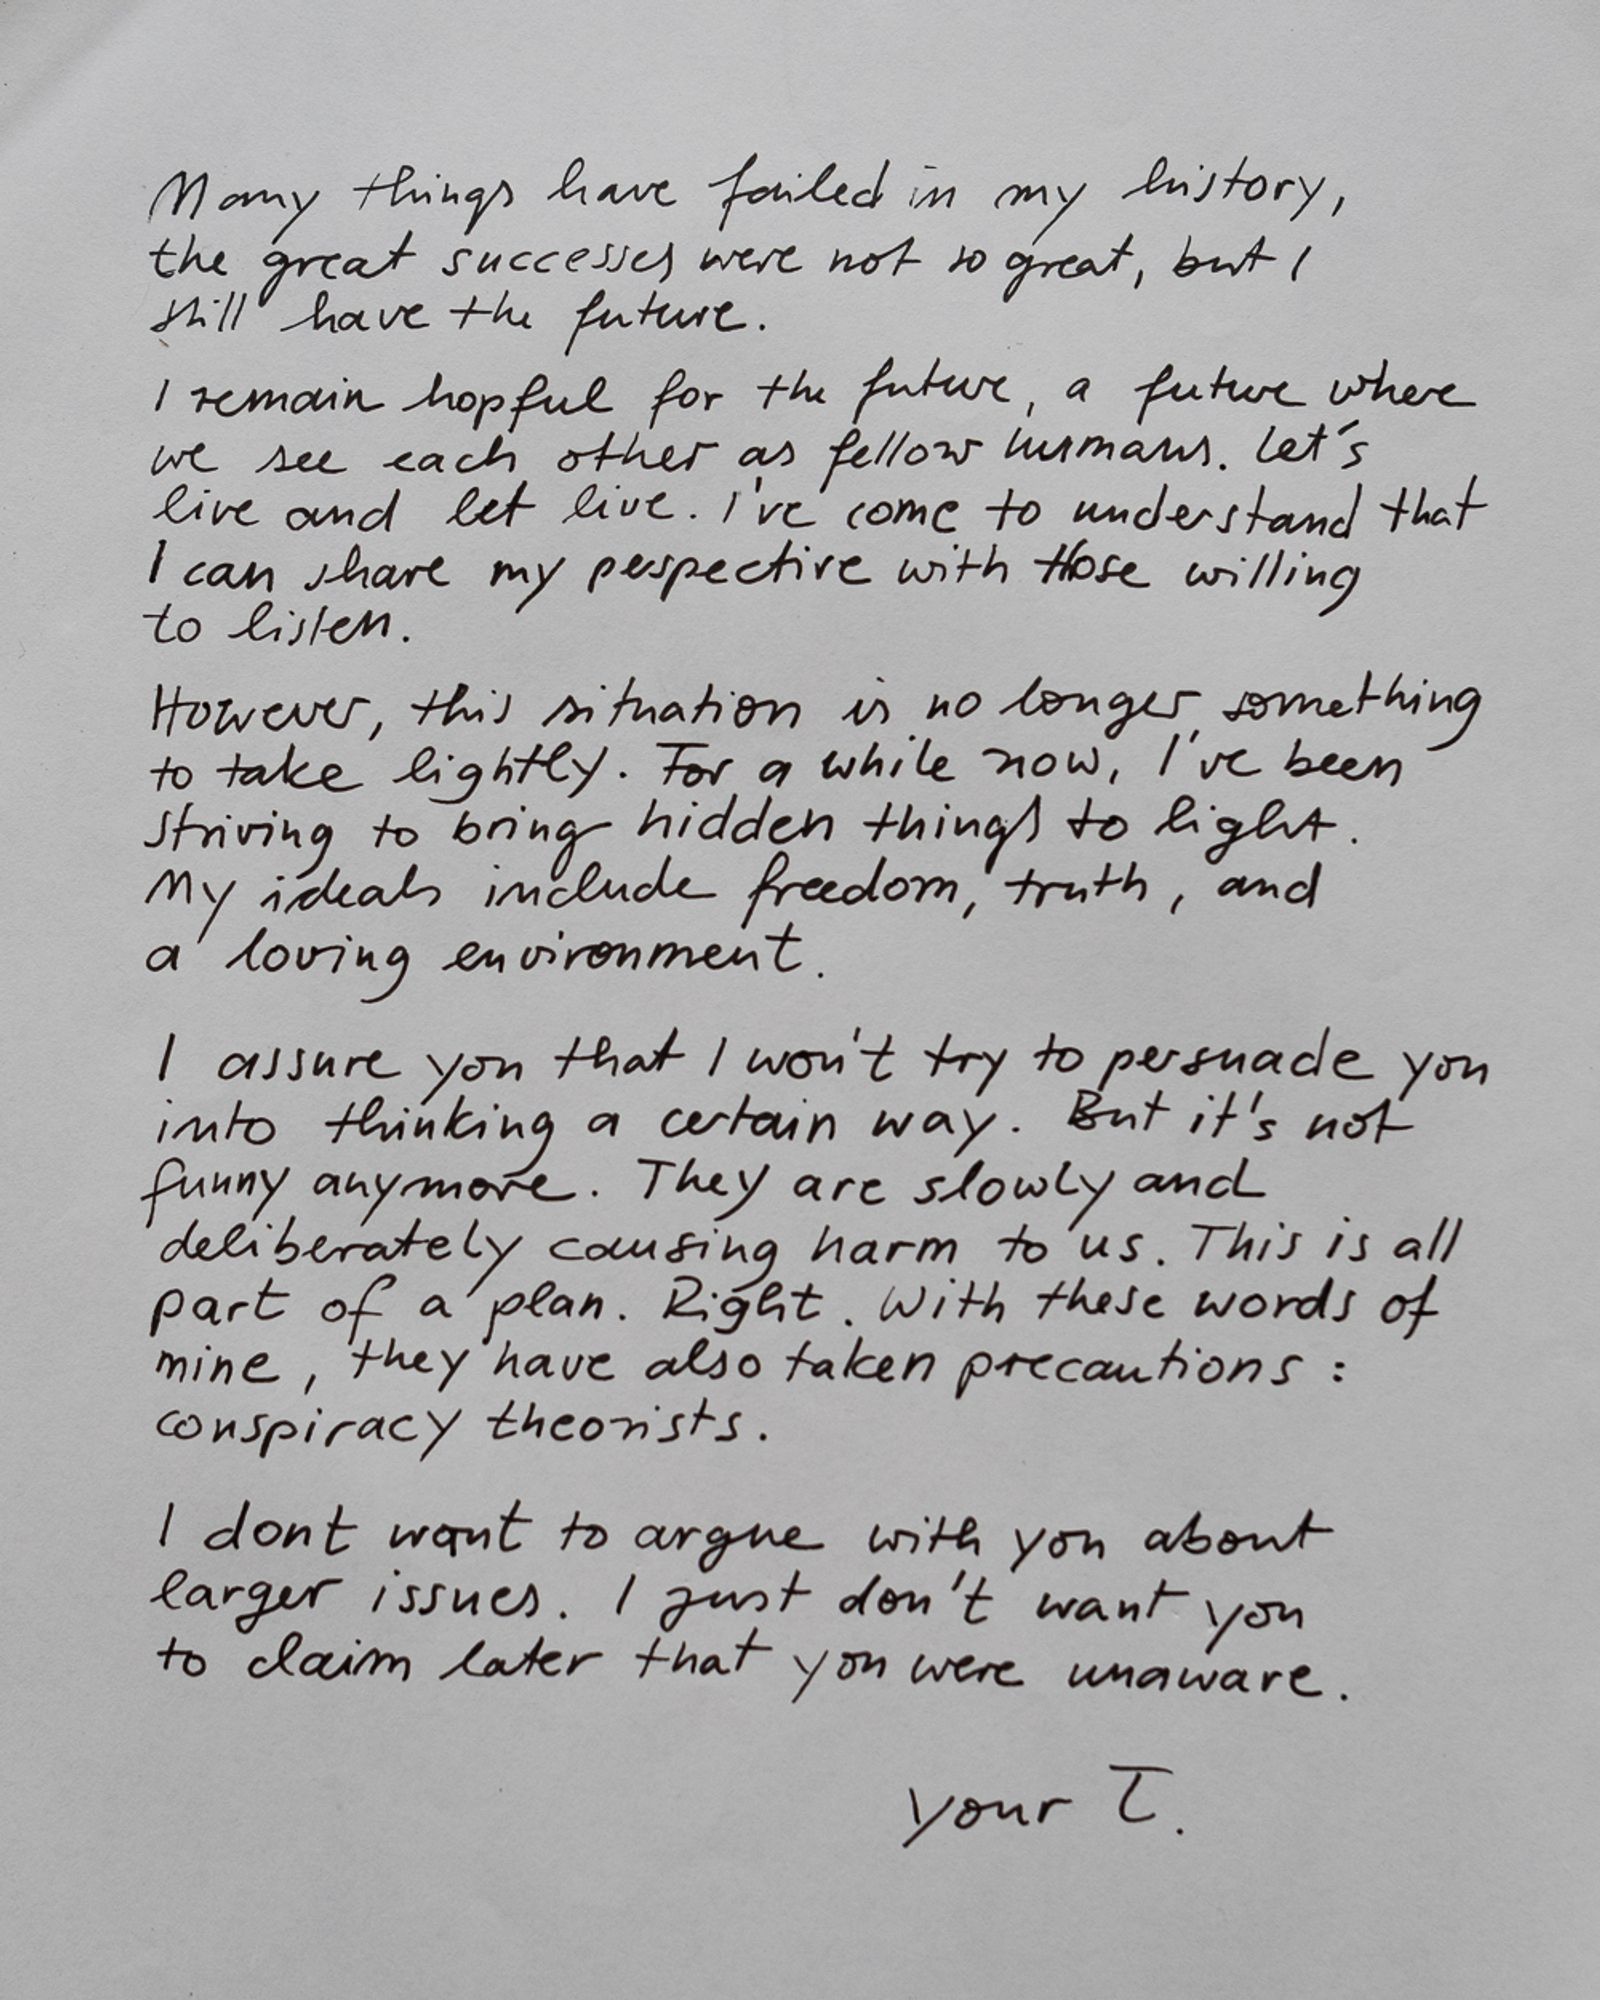 Many things have failed in my history,
the great successes were not so great, but I
still have the future.
I remain hopful for the future, a future where
we see each other as fellow humans. Let's
live and let live. I've come to understand that
I can share my perspective with those willing
to listen.
However, this situation is no longer something
to take lightly. For a while now, I've been
striving to bring hidden things to light.
My ideals include freedom, truth, and
a loving environment.
I assure you that I won't try to persuade you
into thinking a certain way. But it's not
funny anymore. They are slowly and
deliberately causing harm to us. This is all
part of a plan. Right. With these words of
mine, they have also taken precautions:
conspiracy theorists.
I dont want to argue with you about
larger issues. I just don't want you
to claim later that you were unaware.
your T.